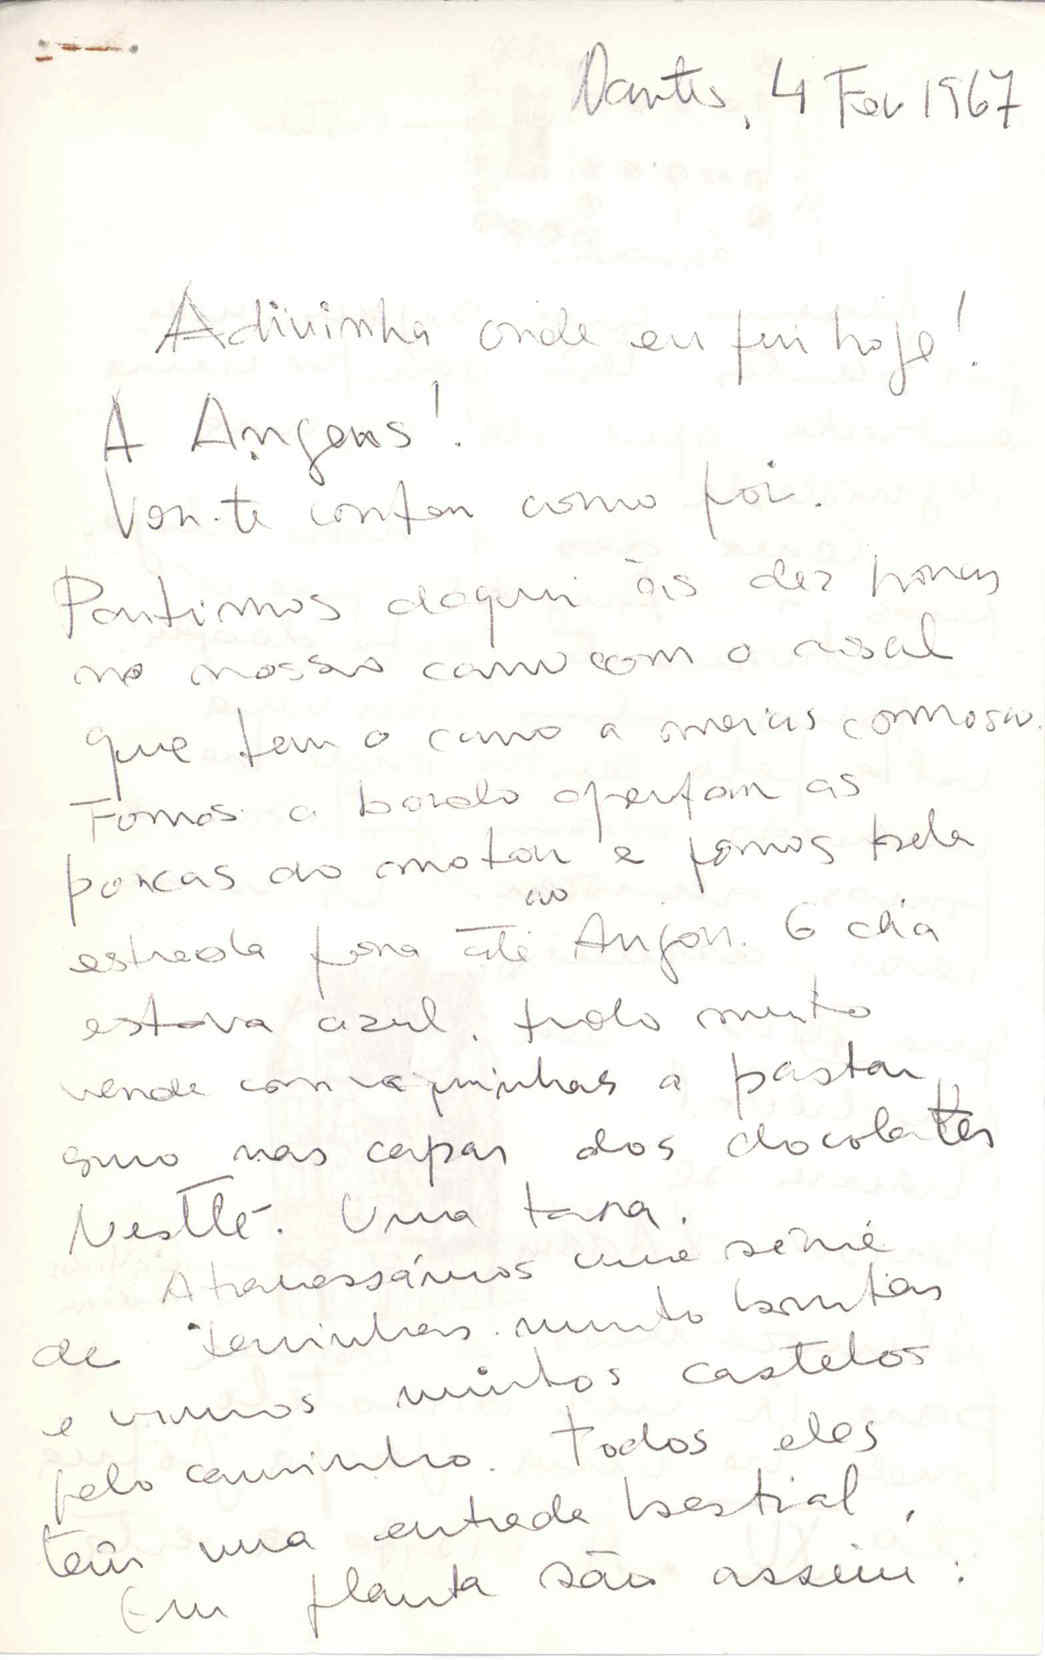 Nantes, 4 Fev 1967
Adivinha onde eu fui hoje!
A Angers!
Vou-te contar como foi.
Partimos daqui às dez horas
no nosso carro com o casal
que tem o carro a meias connosco.
Fomos a bordo apertar as
porcas do motor e fomos pela
estrada fora até ao Anjou. O dia
estava azul, tudo muito
verde com vaquinhas a pastar
como nas capas dos chocolates
Nestlé. Uma tara.
Atravessámos uma série
de terrinhas muito bonitas
e vimos muitos castelos
pelo caminho. Todos eles
têm uma entrada bestial,
Em planta são assim: